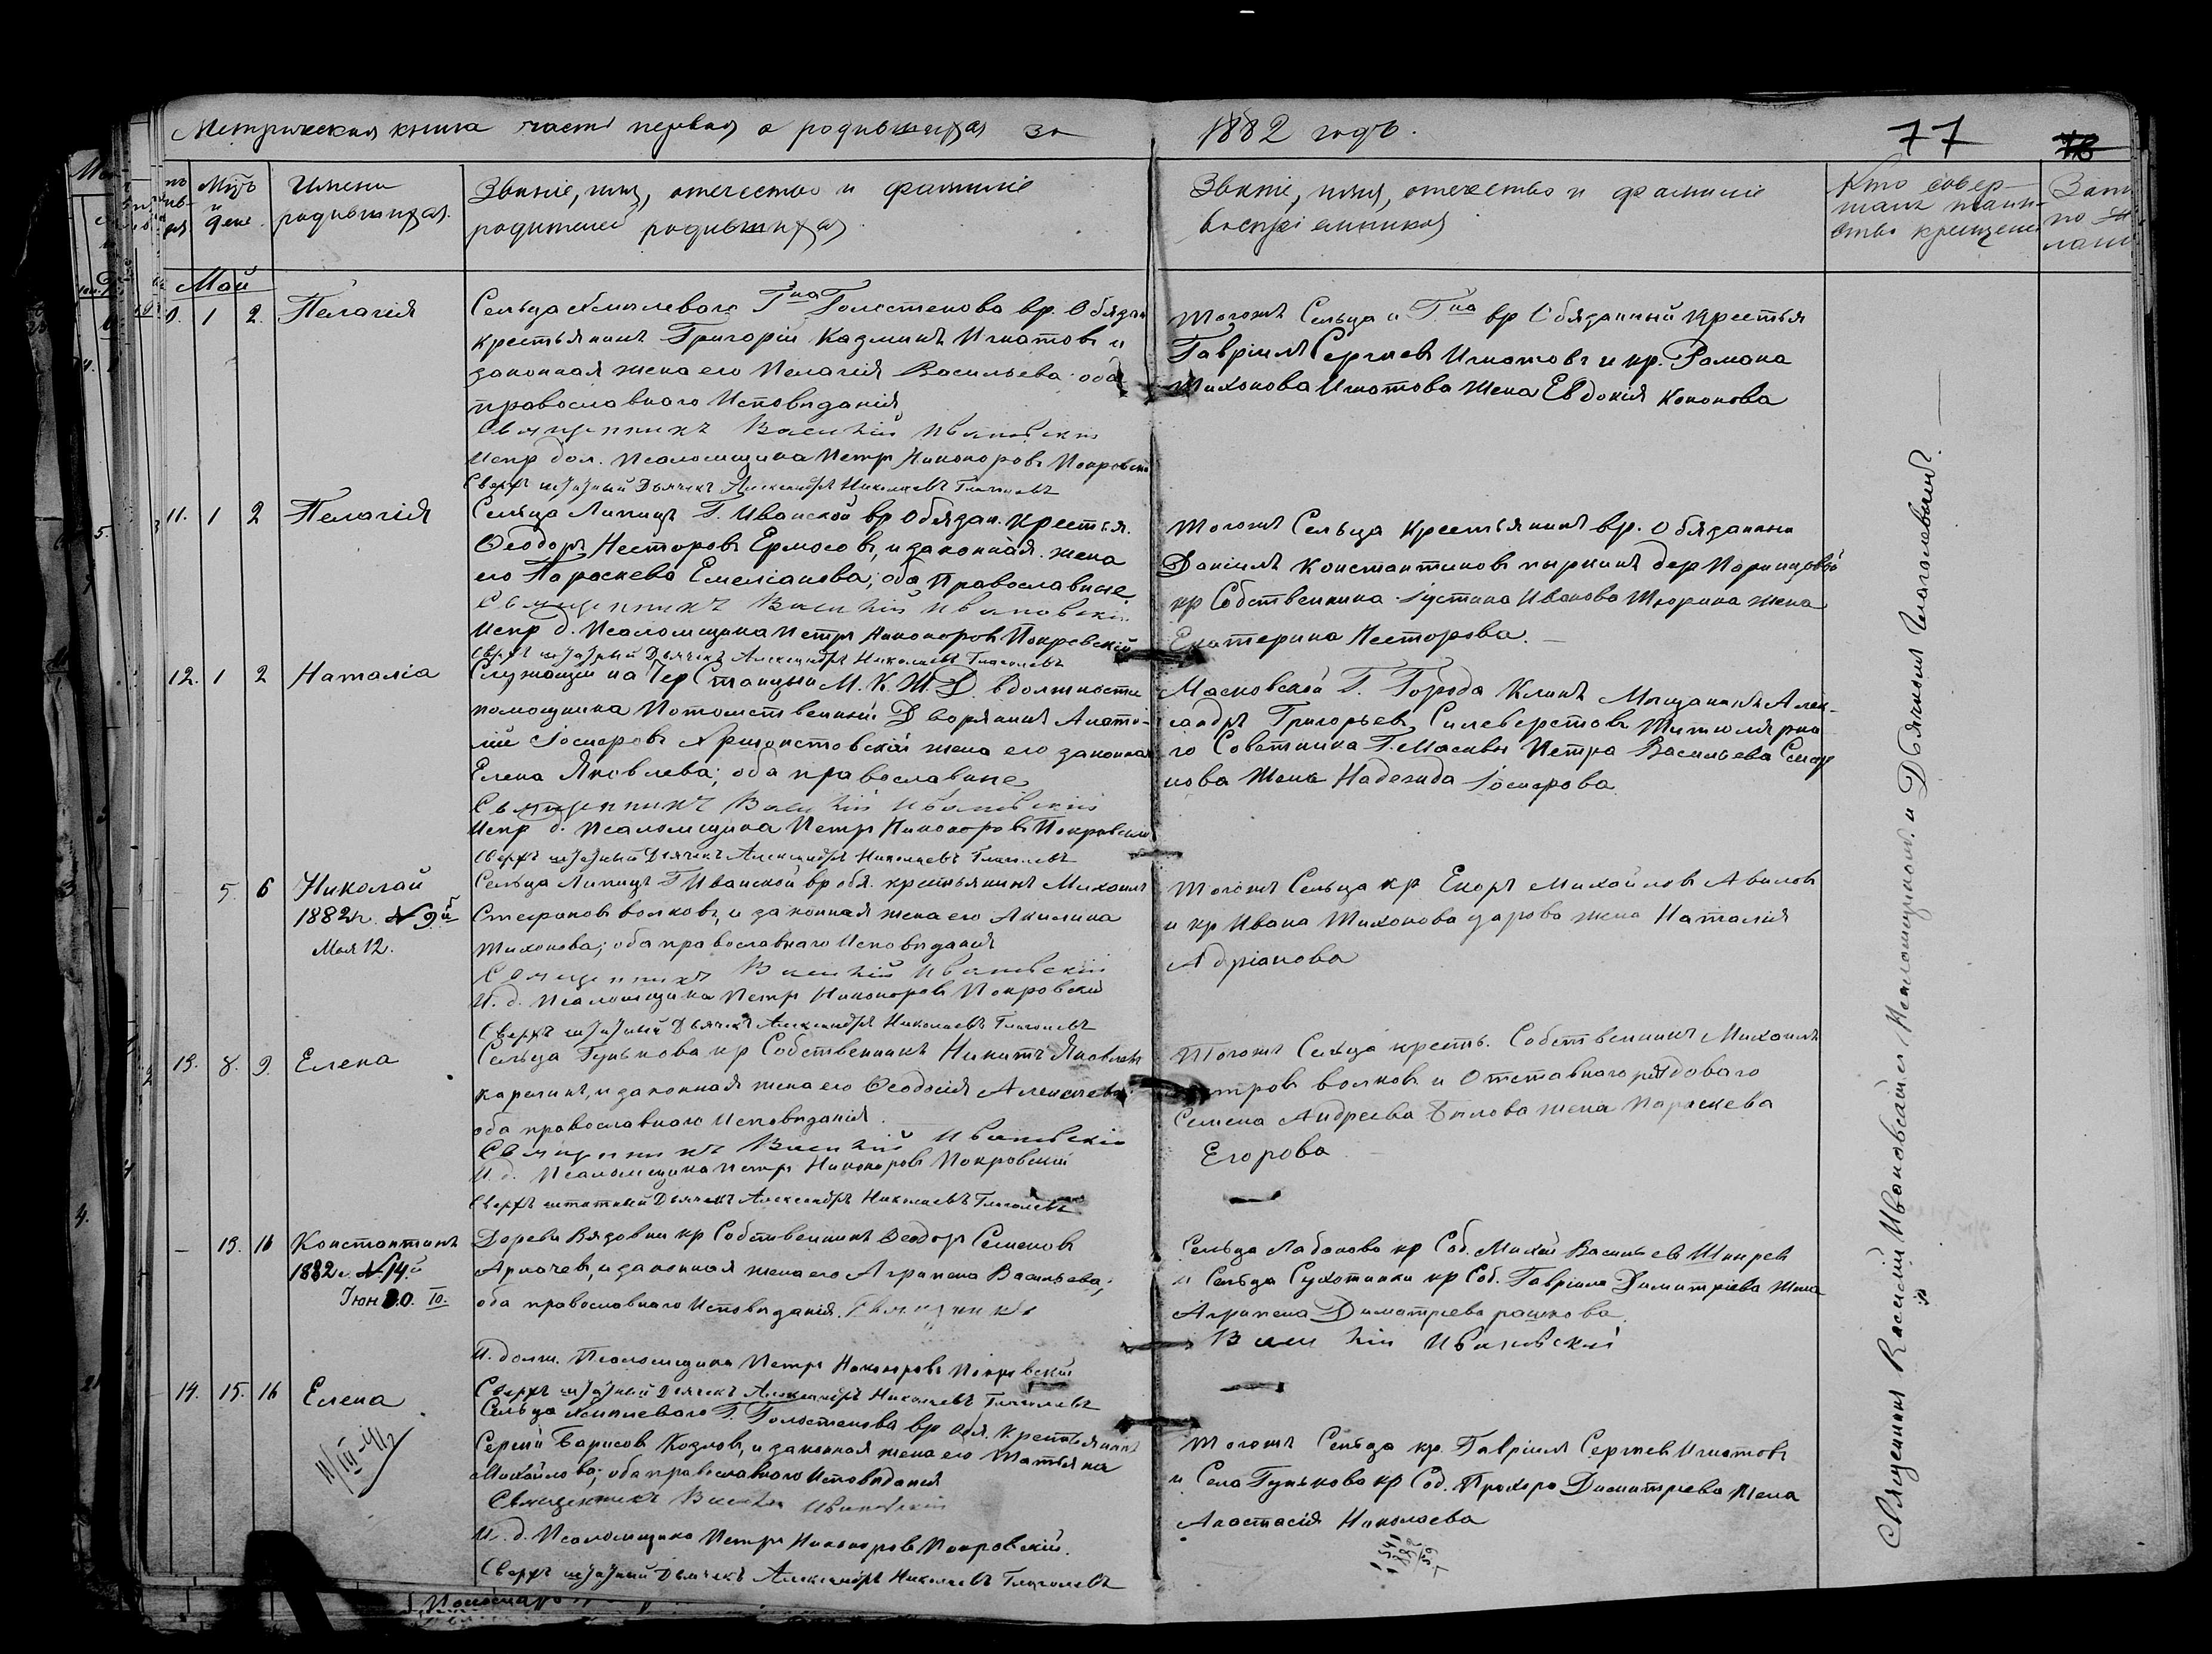 Метрическая книга часть первая о родившихся за 1882 годъ. 77
Мцъ и день
Имена родившихся.
Званіе, имя, отечество и фамиліе
родителей родившихся
Званіе, имя, отечество и фамиліе
воспріемниковъ
Кто совер-
шалъ таин-
ство крещенія
Май
1 2. Пелагія
Сельца Хмолеваго Гна Голостенова вр. Обязан
крестьянинъ Григорій Казминъ Игнатовъ и
законная жена его Пелагія Васильева; оба
православнаго Исповѣданія
Священникъ Василій Ивановскій
Испр дол. Псаломщика Петръ Никоноровъ Покровскі
Сверхъ штатный Дьячекъ Александръ Николаевъ Глаголевъ
Тогожъ Сельца и Гна вр Обязанный Крестья
Гавріилъ Сергѣевъ Игнатовъ и кр. Романа
Тихонова Игнатова Жена Евдокія Кононова
11. 1 2 Пелагія
Сельца Липицъ Г. Иванской вр Обязан. Крестья.
Ѳеодоръ Несторовъ Ермосовъ, и законная жена
его Параскева Емеліанова; оба Православные
Священникъ Василій Ивановскій
Испр д. Псаломщика Петръ Никоноровъ Покровскій
Сверхъ штатный Дьячекъ Александръ Николаевъ Глаголевъ
Тогожъ Сельца Крестьянинъ вр. Обязанны
Даніилъ Константиновъ дер
кр Собственника Іустина Иванова Тюрина жена
Екатерина Несторова. —
12. 1 2 Наталіа
Служащій на Станціи М. К. Ж. Д. в должности
помощника Потомственный Дворянинъ Анато-
лій Іосифовъ жена его законная
Елена Яковлева; оба православные
Священникъ Василій Ивановскій
Испр д. Псаломщика Петръ Никоноровъ Покровскій
Сверхъ штатный Дьячекъ Александръ Николаевъ Глаголевъ
Московской Г. Города Клинъ Мѣщанинъ Алек-
сандръ Григорьевъ Силеверстовъ Титулярна
го Совѣтника Г. Москвы Петра Васильева
нова Жена Надежда Іосифова
5. 6 Николай
1882 г. № 9й
Мая 12.
Сельца Липицъ Г Иванской вр обя. крестьянинъ Михаилъ
Стефановъ Волковъ, и законная жена его Акилина
Тихонова; оба православнаго Исповѣданія
Священникъ Василій Ивановскій
И. д. Псаломщика Петръ Никоноровъ Покровскій
Сверхъ штатный Дьячекъ Александръ Николаевъ Глаголевъ
Тогожъ Сельца кр Егоръ Михайловъ Авиловъ
и кр Ивана Тихонова жена Наталія
Адріанова
13. 8. 9. Елена
Сельца Гунькова кр Собственникъ Никита Яковлевъ
и законная жена его Ѳеодосія Алексѣева;
оба православнаго Исповѣданія.
Священникъ Василій Ивановскій
И. д. Псаломщика Петръ Никоноровъ Покровскій
Сверхъ штатный Дьячекъ Александръ Николаевъ Глаголевъ
Тогожъ Сельца кресть. Собственникъ Михаилъ
Петровъ Волковъ и Отставнаго рядоваго
Семена Андреева Бѣлова жена Параскева
Егорова
— 13. 16 Константинъ
1882 г. № 14й
Іюн
Деревн Вязовни кр Собственникъ Ѳеодоръ Семеновъ
и законная жена его Агрипена Васильева;
оба православнаго Исповѣданія. Священникъ
Василій Ивановскій
И. долж. Псаломщика Петръ Никоноровъ Покровскій
Сверхъ штатный Дьячекъ Александръ Николаевъ Глаголевъ
Сельца Лабаново кр Соб. Михей Васильевъ
и Сельца Сухотинки кр Соб. Гавріила Димитріева Жена
Агрипена Димитріева
14. 15. 16 Елена
11/III-41
Сельца Хмолеваго Г. Голостенова вр обя. Крестьянинъ
Сергѣй Барисовъ Козловъ, и законная жена его Татьяна
Михайлова; оба православнаго Исповѣданія
Священникъ Василій Ивановскій
И. д. Псаломщика Петръ Никоноровъ Покровскій.
Сверхъ штатный Дьячекъ Александръ Николаевъ Глаголевъ
Тогожъ Сельца кр. Гавріилъ Сергѣевъ Игнатовъ
и Села Гуньково кр Соб. Прохора Димитріева Жена
Анастасія Николаева
1941
1882
59
Священникъ Василій Ивановскій съ Псаломщикомъ и Дьячкомъ Глаголевымъ.